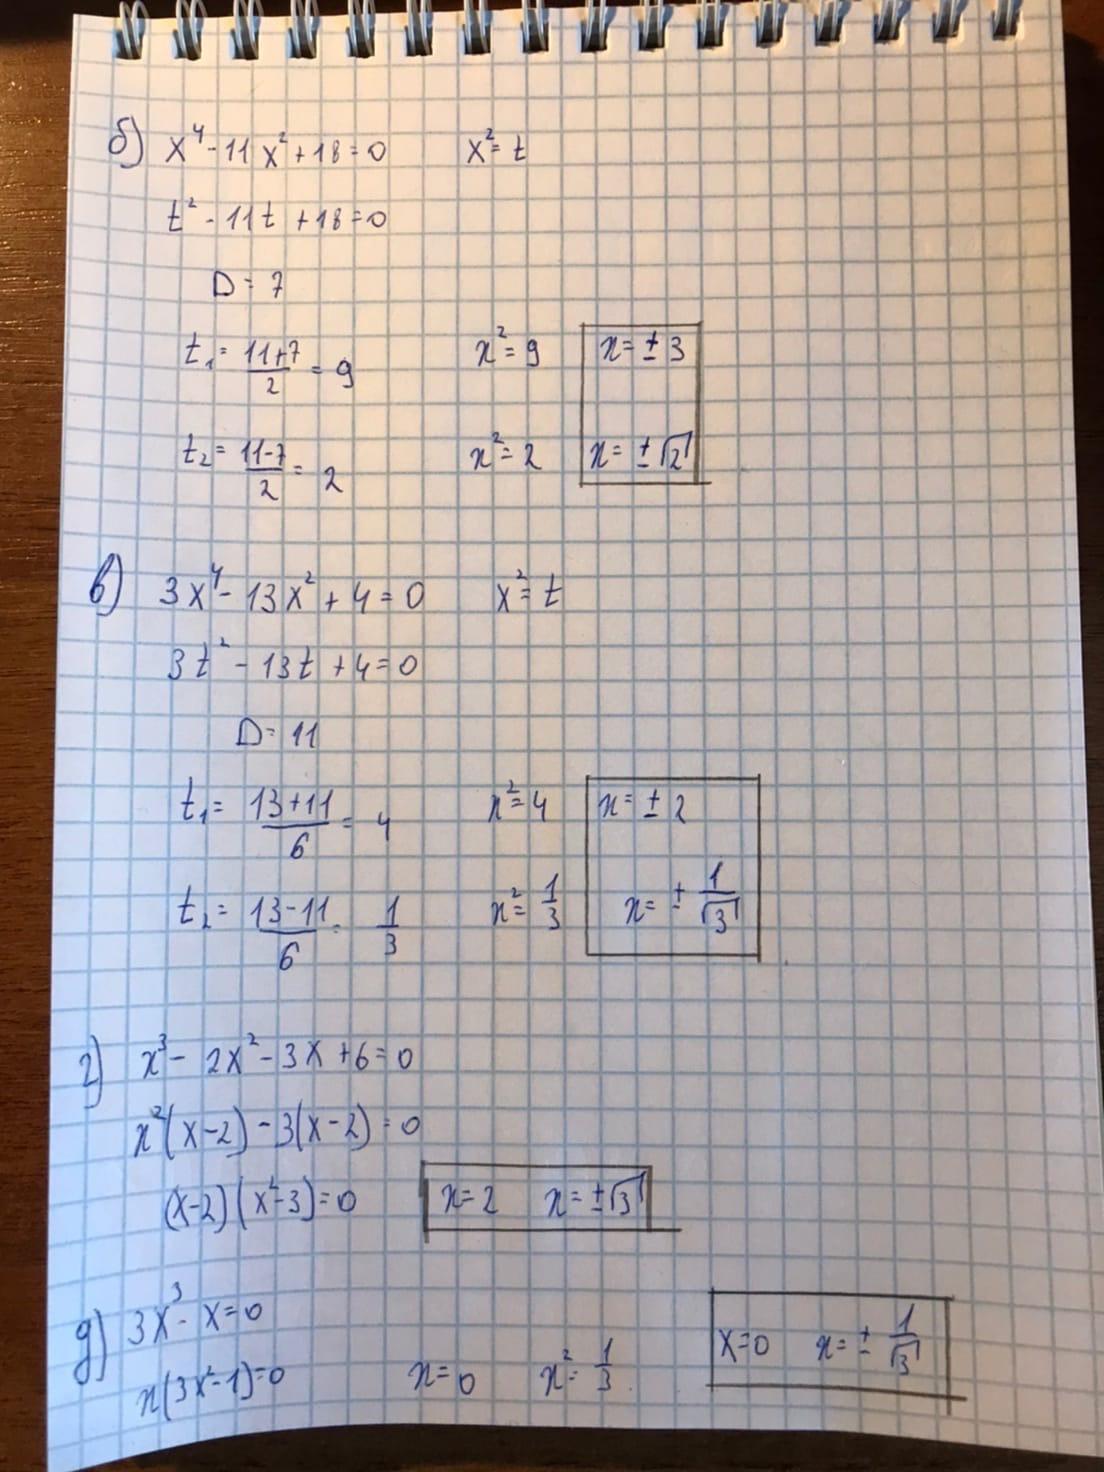 б) x⁴ - 11x² + 18 = 0 x² = t
t² - 11t + 18 = 0
D = 7
t₁ = (11+7)/2 = 9 x² = 9 x = ± 3
t₂ = (11-7)/2 = 2 x² = 2 x = ± √2
в) 3x⁴ - 13x² + 4 = 0 x² = t
3t² - 13t + 4 = 0
D = 11
t₁ = (13+11)/6 = 4 x² = 4 x = ± 2
t₂ = (13-11)/6 = 1/3 x² = 1/3 x = ± 1/√3
г) x³ - 2x² - 3x + 6 = 0
x²(x-2) - 3(x-2) = 0
(x-2)(x²-3) = 0 x = 2 x = ±√3
д) 3x³ - x = 0
x(3x²-1) = 0 x = 0 x² = 1/3 x = 0 x = ± 1/√3